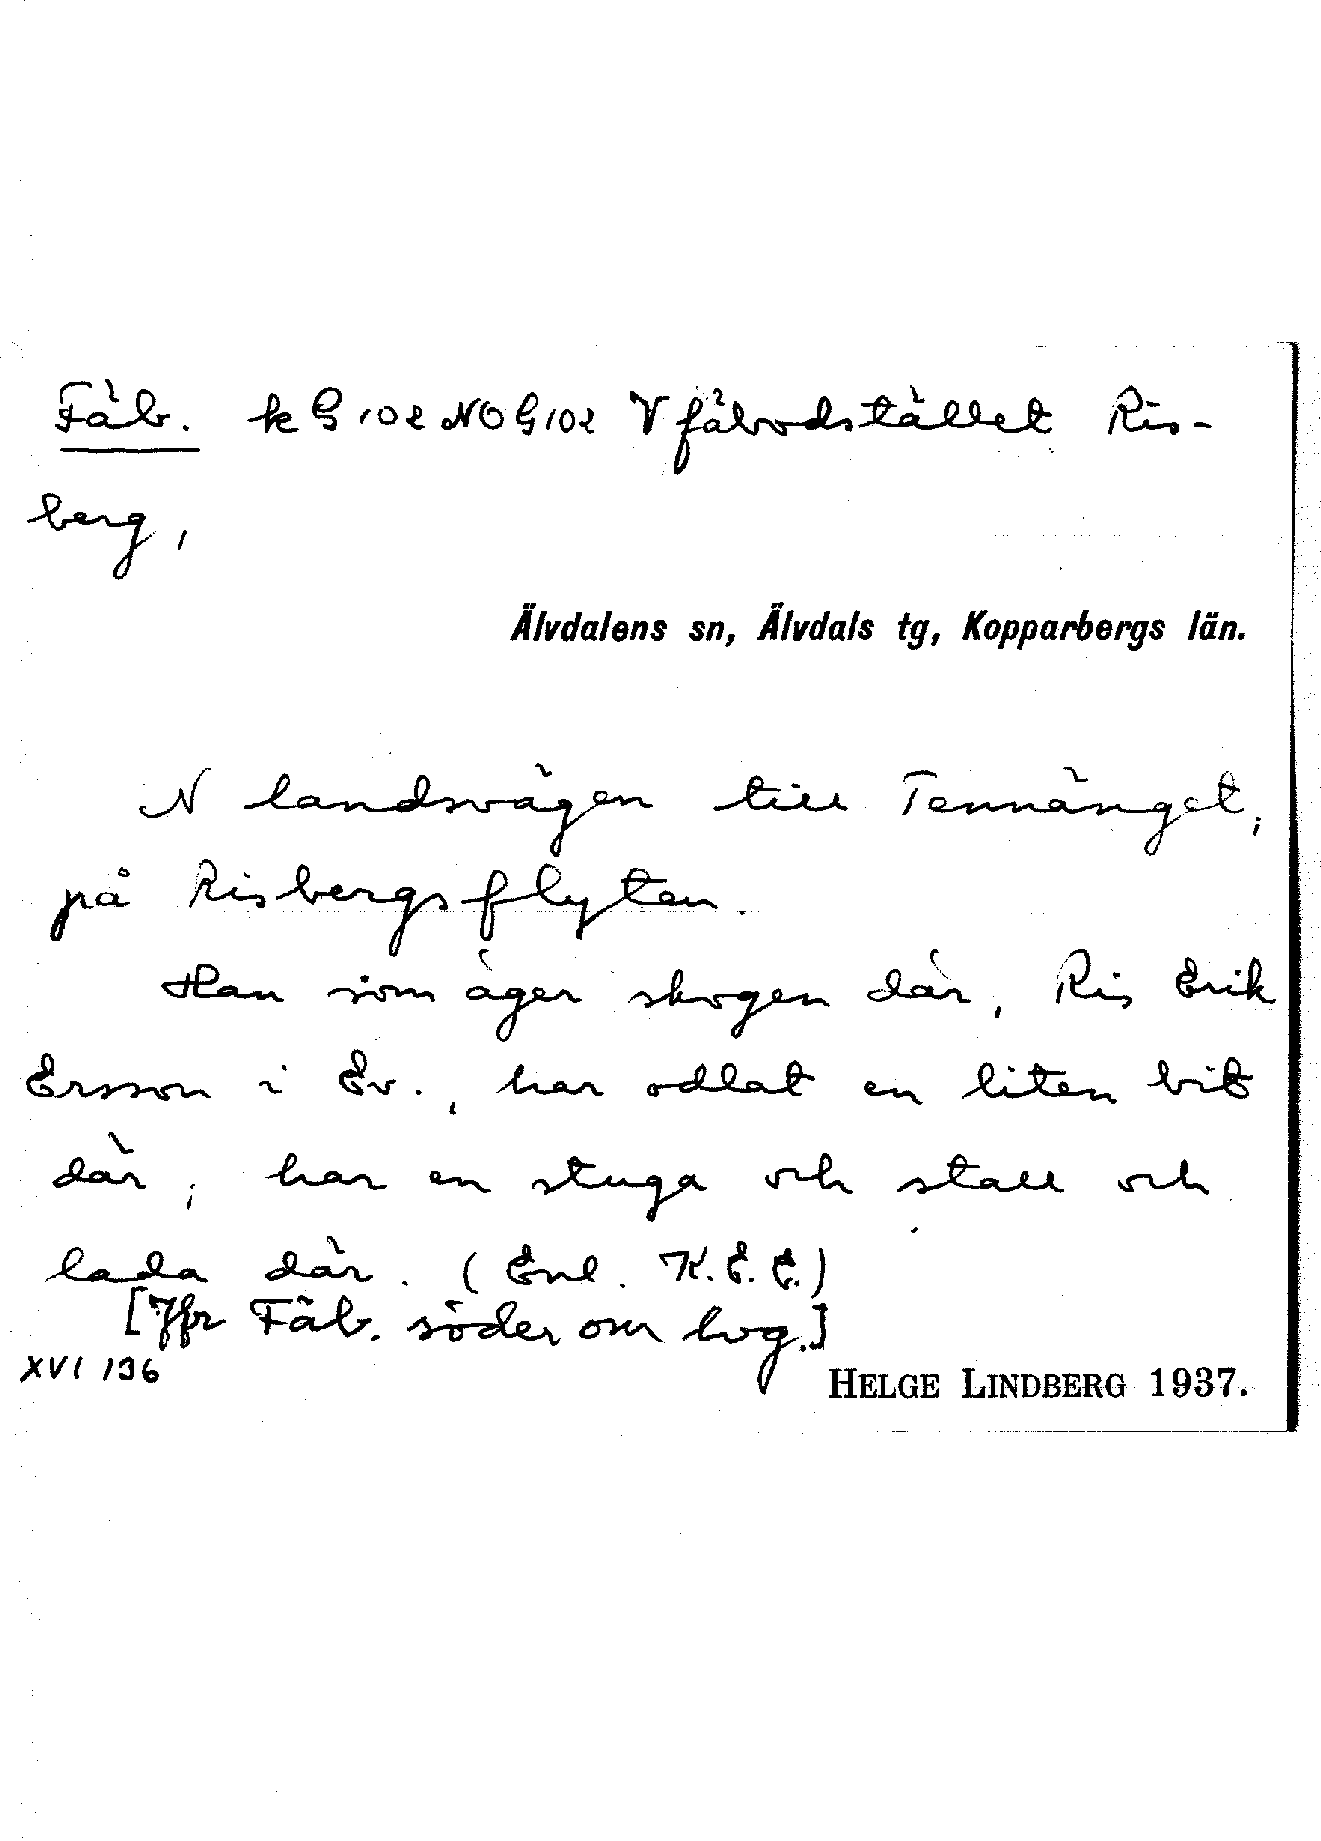 Fäb. k G 102 NO G 102 V fäbodstället Ris-
berg,
Älvdalens sn, Älvdals tg, Kopparbergs län.
N landsvägen till Tennänget,
på Risbergsflyten.
Han som äger skogen där, Ris Erik
Ersson i Ev., har odlat en liten bit
där, har en stuga och stall och
lada där. (Enl. K.E.E.)
[Jfr Fäb. söder om lvg.]
XVI 136
HELGE LINDBERG 1937.